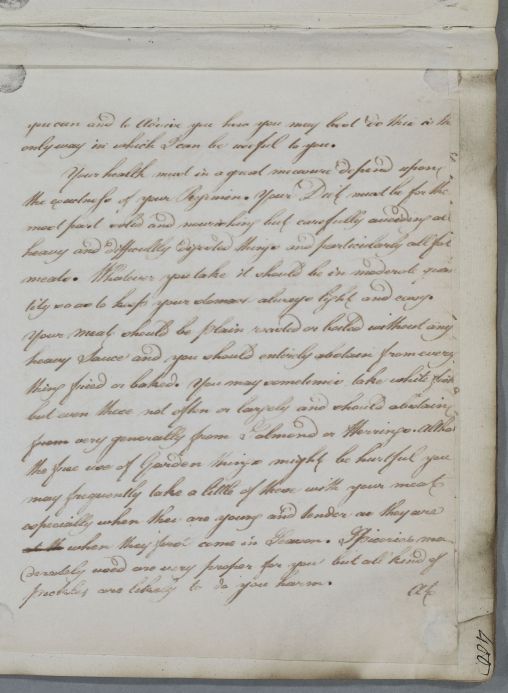 you can and to advise you how you may best do this is the
only way in which I can be useful to you.
Your health must in a great measure depend upon
the exactness of your Regimen. Your Diet must be for the
most part solid and nourishing but carefully avoiding all
heavy and difficultly digested things and particularly all fat
meats. Whatever you take it should be in moderate quan
tity so as to keep your stomach always light and easy.
Your meat should be plain roasted or boiled without any
heavy Sauce and you should entirely abstain from every
thing fried or baked. You may sometimes take white fish
but even these not often or largely and should abstain
from very generally from Salmond or Herrings. Altho
the free use of Garden things might be hurtful you
may frequently take a little of these with your meat
especially when these are young and tender as they are
when they first come in Season. Spiceries mo
derately used are very proper for you but all kind of
Pickles are likely to do you harm.
At
400